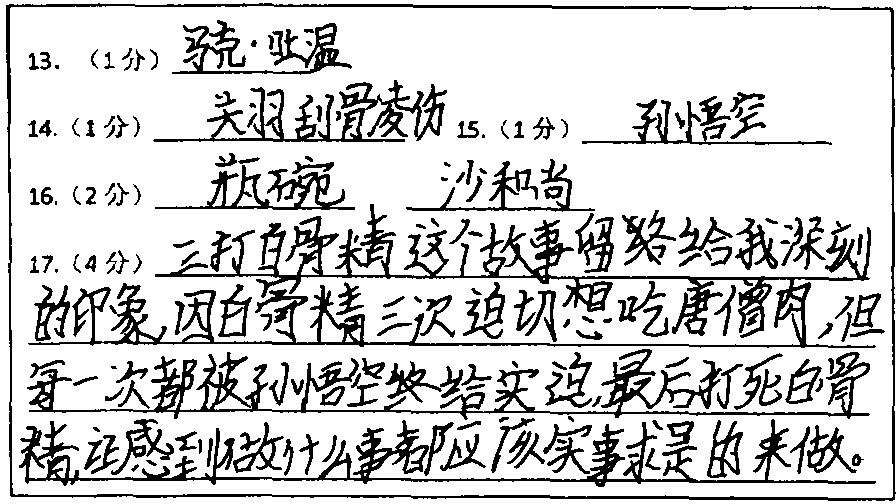 13. （1分） 骁克·吐温
14.（1分） 关羽刮骨凌伤 15.（1分） 孙悟空
16.（2分） 瓶碗 沙和尚
17.（4分） 三打白骨精这个故事留给我深刻
的印象,因白骨精三次迫切想吃唐僧肉,但
每一次都被孙悟空给实迫,最后打死白骨
精,感到做什么事都应该实事求是的来做。